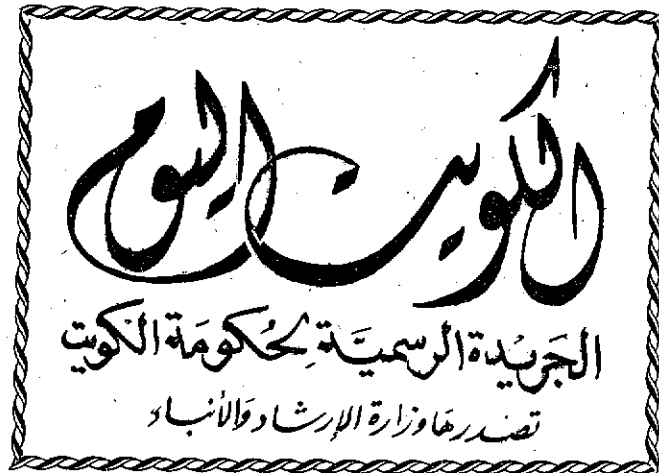 الكويت اليوم
الجَريْدة الرسميَّة لحُكومَة الكويت
تصدرهَا وزارة الإرشاد وَالأنباء